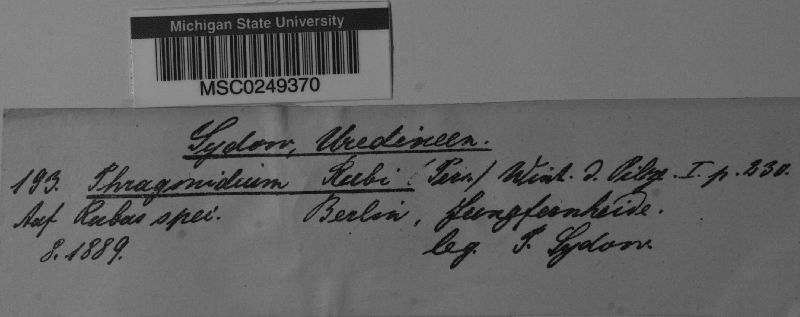 Michigan State University
MSC0249370
Sydow, Uredineen.
193. Phragmidium Rubi (Pers.) Wint. d. Pilze. I. p. 230.
Auf Rubus spei.
Berlin, Jungfernheide.
8. 1889.
leg. P. Sydow.